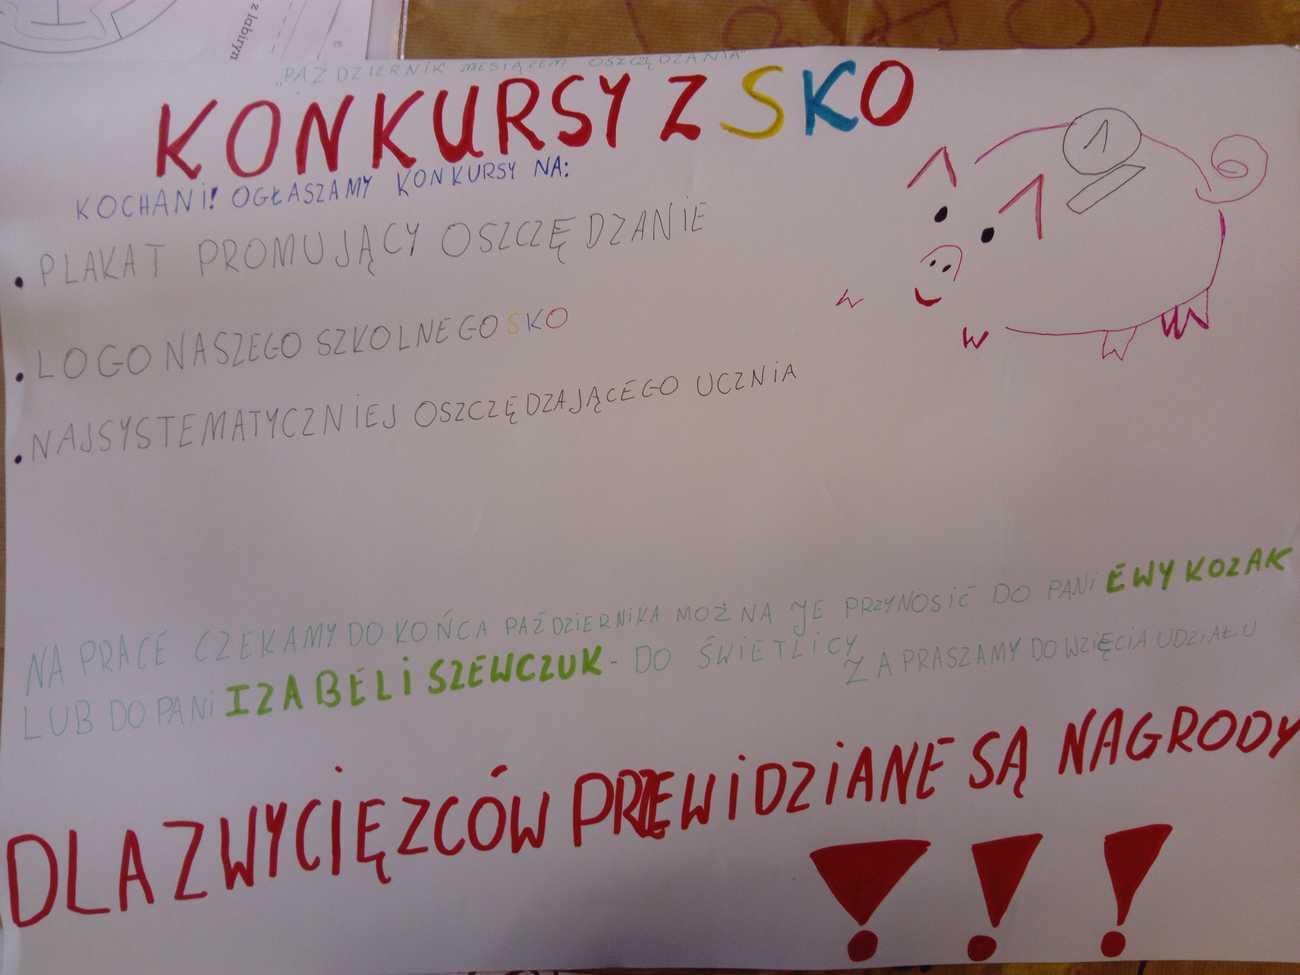 z labiryn
"PAŹDZIERNIK MIESIĄCEM OSZCZĘDZANIA"
KONKURSY Z SKO
KOCHANI! OGŁASZAMY KONKURSY NA:
• PLAKAT PROMUJĄCY OSZCZĘDZANIE
• LOGO NASZEGO SZKOLNEGO SKO
• NAJSYSTEMATYCZNIEJ OSZCZĘDZAJĄCEGO UCZNIA
1
NA PRACE CZEKAMY DO KOŃCA PAŹDZIERNIKA MOŻNA JE PRZYNOSIĆ DO PANI EWY KOZAK
LUB DO PANI IZABELI SZEWCZUK - DO ŚWIETLICY
ZAPRASZAMY DO WZIĘCIA UDZIAŁU
DLA ZWYCIĘZCÓW PRZEWIDZIANE SĄ NAGRODY
!!!